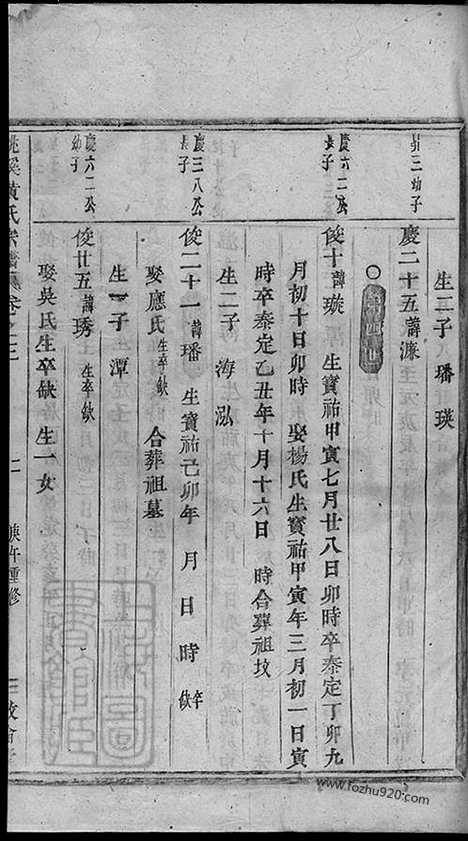 生二子 璠 瑛
昇三幼子
慶二十五諱濂
慶六二公
長子
俊十諱璇 生寶祐甲寅七月廿八日卯時卒泰定丁卯九
月初十日卯時 娶楊氏生寶祐甲寅年三月初一日寅
時卒泰定乙丑年十月十六日 時合葬祖坟
生二子 海 泓
慶三八公
長子
俊二十一諱璠 生寶祐己卯年 月 日 時 卒缺
娶應氏生卒缺 合葬祖墓
生一子 潭
慶六二公
幼子
俊廿五諱琇 生卒缺
娶吳氏生卒缺 生一女
黃氏宗譜 卷之三 二 庚午重修 敘倫
www.fozhu920.com